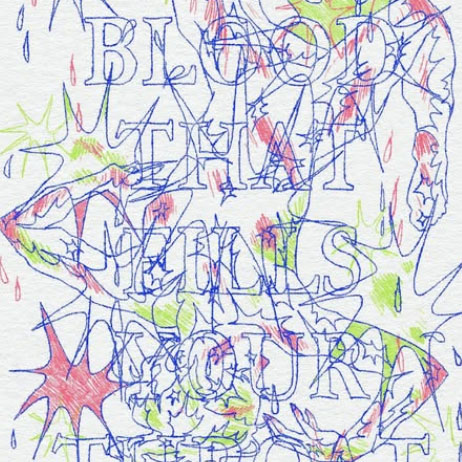 BLOOD
THAT
FILLS
YOUR